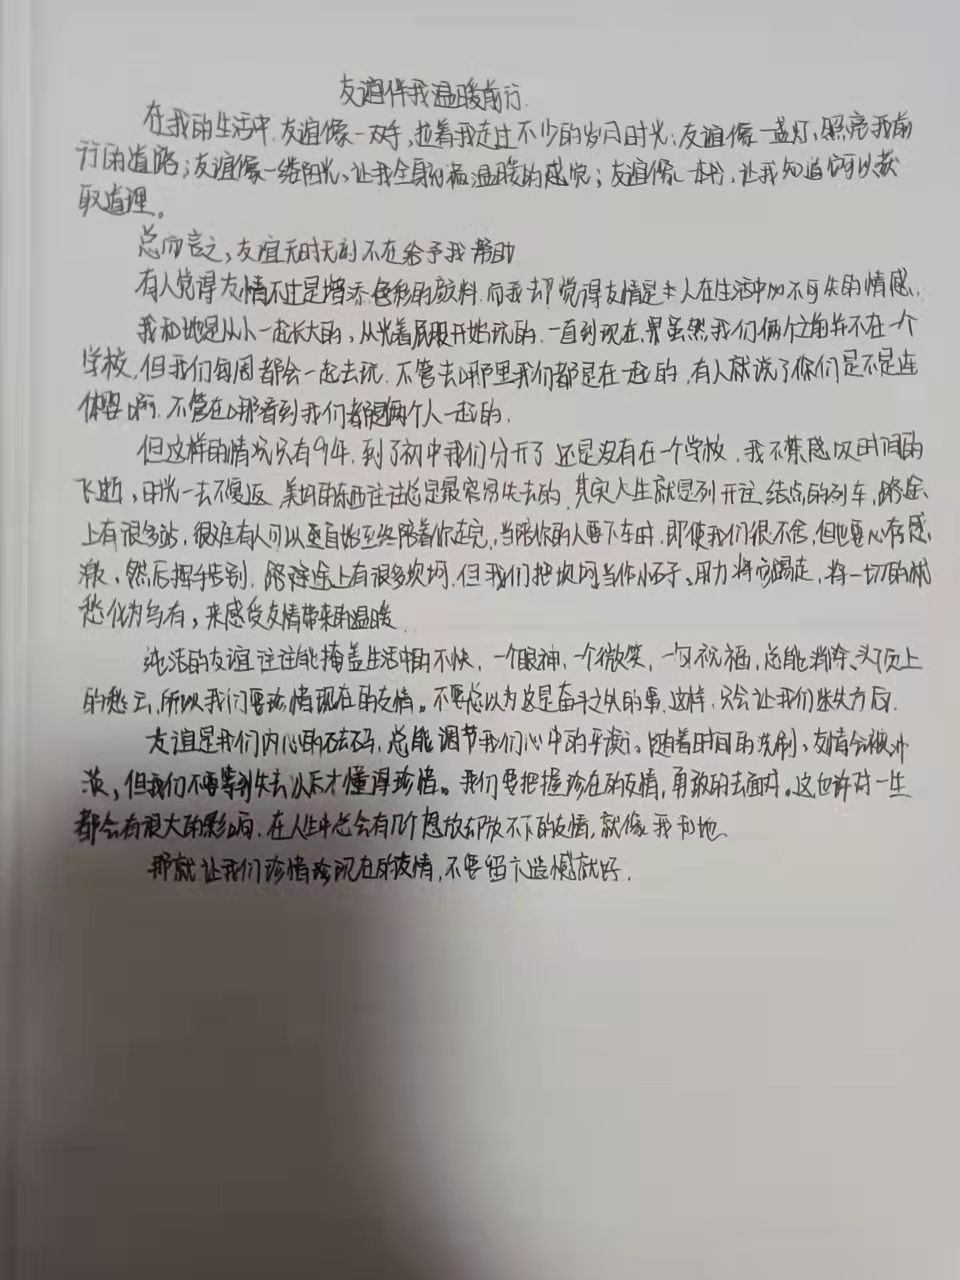 友谊伴我温暖前行
在我的生活中,友谊像一双手,拉着我走过不少的岁月时光;友谊像一盏灯,照亮我前
行的道路;友谊像一缕阳光、让我全身充满温暖的感觉;友谊像一本书,让我知道它可以获
取道理。
总而言之,友谊无时无刻不在给予我帮助
有人觉得友情不过是增添色彩的颜料.而我却觉得友情是人在生活中必不可失的情感.
我和她是从小一起长大的,从光着屁股开始玩的.一直到现在,虽然我们俩个之前并不在一个
学校,但我们每周都会一起去玩.不管去哪里我们都是在一起的,有人就说了你们是不是连
体婴啊.不管在哪看到我们都是俩个人一起的.
但这样的情况只有9年,到了初中我们分开了,还是没有在一个学校.我不禁感叹时间的
飞逝,时光一去不复返.美好的东西往往总是最容易失去的.其实人生就是列开往结点的列车,路途
上有很多站,很难有人可以至自始至终陪着你走完,当陪你的人要下车时,即使我们很不舍,但也要心存感
激,然后挥手告别.路途上有很多坎坷.但我们把坎坷当作小石子、用力将它踢走,将一切的忧
愁化为乌有,来感受友情带来的温暖.
纯洁的友谊往往能掩盖生活中的不快,一个眼神,一个微笑,一句祝福,总能消除头顶上
的愁云,所以我们要珍惜现在的友情。不要总以为这是奋斗之外的事.这样,只会让我们迷失方向.
友谊是我们内心的砝码,总能调节我们心中的平衡,随着时间的洗刷、友情会被冲
淡,但我们不要等到失去以后才懂得珍惜。我们要把握珍在的友情,勇敢的去面对。这也许对一生
都会有很大的影响.在人生中总会有几个想放却放不下的友情,就像我和她.
那就让我们珍惜珍现在的友情,不要留下遗憾就好.